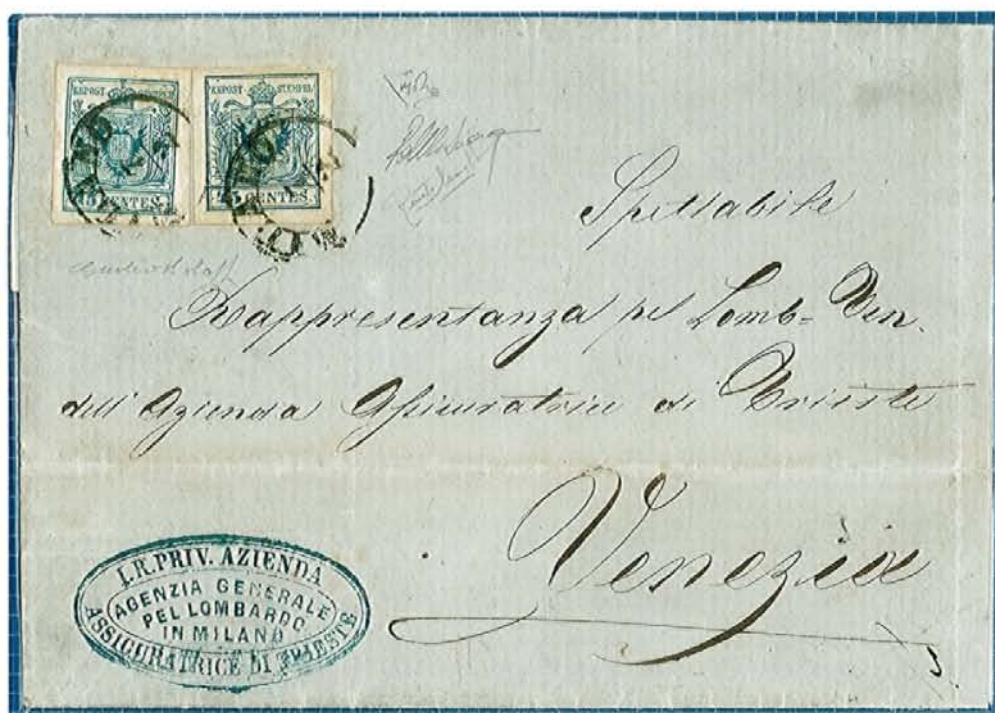 KKPOST STEMPEL KKPOST STEMPEL
45 CENTES. 45 CENTES.
MILANO MILANO
Spettabile
Rappresentanza pel Lomb= Ven.
dell'Azienda Assicuratrice di Trieste
Venezia
I.R. PRIV. AZIENDA
AGENZIA GENERALE
PEL LOMBARDO
IN MILANO
ASSICURATRICE DI TRIESTE